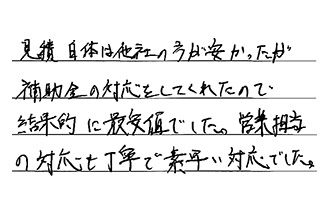 見積自体は他社の方が安かったが
補助金の対応をしてくれたので
結果的に最安値でした。営業担当
の対応も丁寧で素早い対応でした。